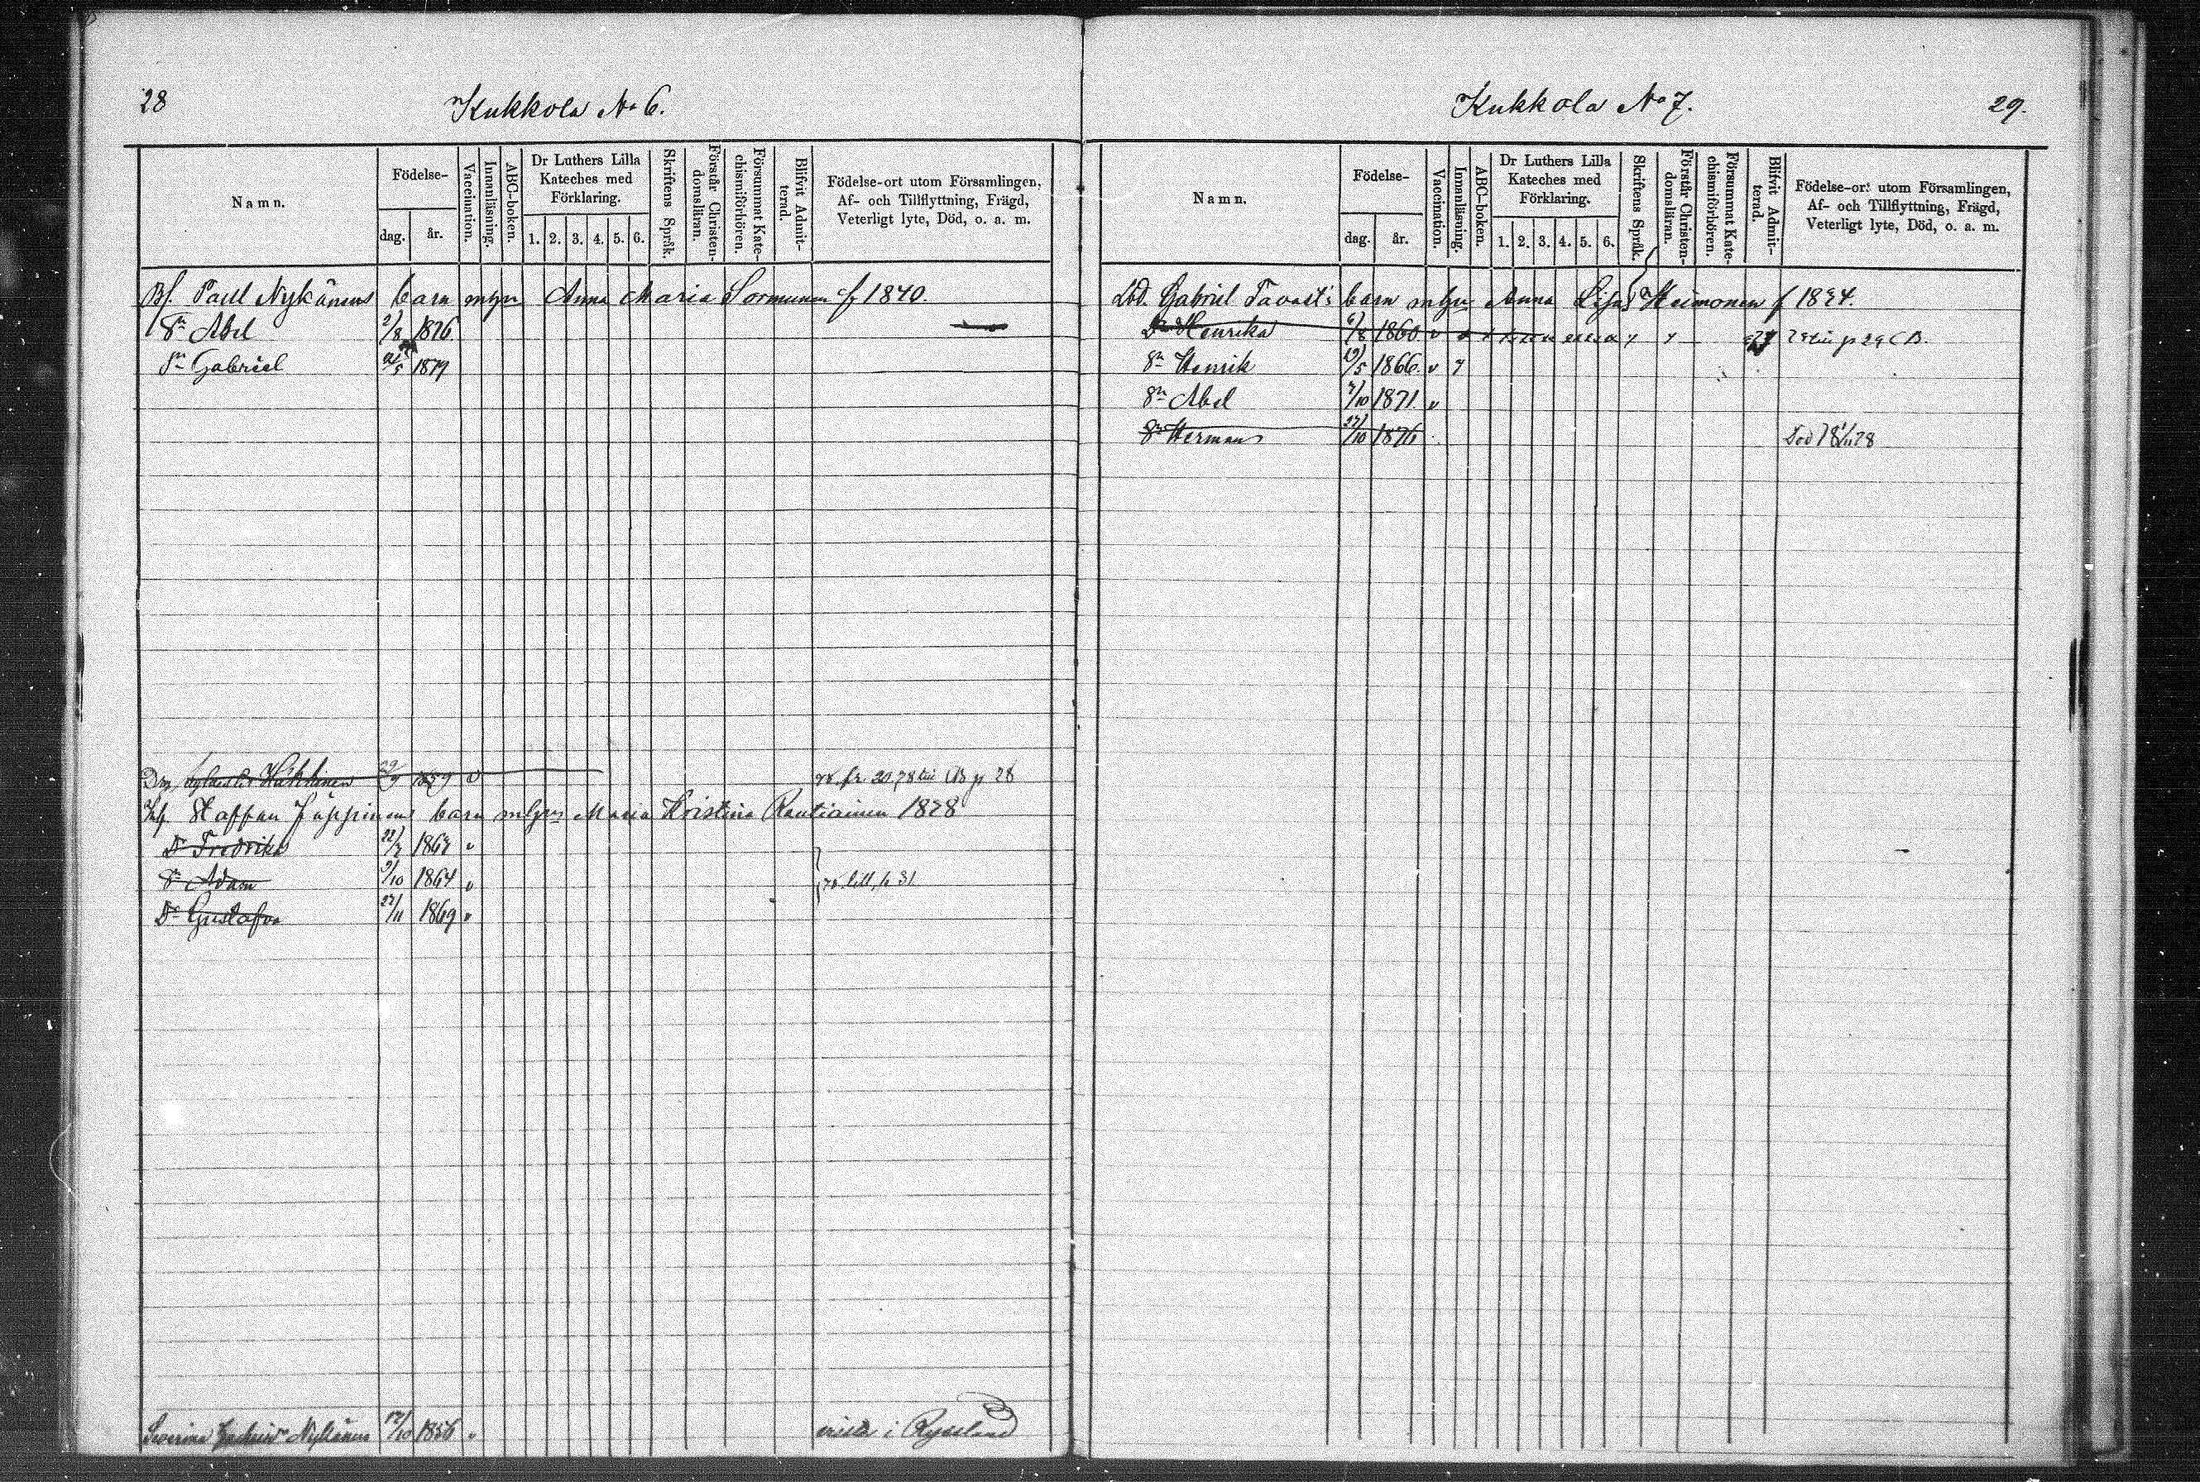 28
Kukkola No 6.
Namn.
Födelse-
dag.
år.
Vaccination.
Innanläsning.
ABC-boken.
Dr Luthers Lilla
Kateches med
Förklaring.
1. 2. 3. 4. 5. 6.
Skriftens Språk.
Förstår Christen-
domsläran.
Försummat Kate-
chismiförhören.
Blifvit Admit-
terad.
Födelse-ort utom Församlingen,
Af- och Tillflyttning, Frägd,
Veterligt lyte, Död, o. a. m.
Bf. Paul Nykänens barn m Anna Maria Sormunen f 1840.
Sn Abel 2/8 1876
Sn Gabriel /5 1879
Häkkinen 29/ 1859 v fr. 20, 78 till CB p 28
Staffan Jäppinens barn m Maria Kristina Rautiainen 1828
Dr Fredrika 22/2 186 v
Sn Adam 9/10 1864 v till p 31
Dr Gustafva 27/11 1869 v
Severina Nykänen 12/10 1856 v vistas i Ryssland
Kukkola No 7.
29.
Namn.
Födelse-
dag.
år.
Vaccination.
Innanläsning.
ABC-boken.
Dr Luthers Lilla
Kateches med
Förklaring.
1. 2. 3. 4. 5. 6.
Skriftens Språk.
Förstår Christen-
domsläran.
Försummat Kate-
chismiförhören.
Blifvit Admit-
terad.
Födelse-ort utom Församlingen,
Af- och Tillflyttning, Frägd,
Veterligt lyte, Död, o. a. m.
Lbd. Gabriel Tavast's barn m Anna Lisa Heimonen f 1834.
Dr Henrika 6/8 1860 v till p 29 CB.
Sn Henrik 19/5 1866 v
Sn Abel 7/10 1871 v
Sn Herman 27/10 1876 Död 18 1/11 78